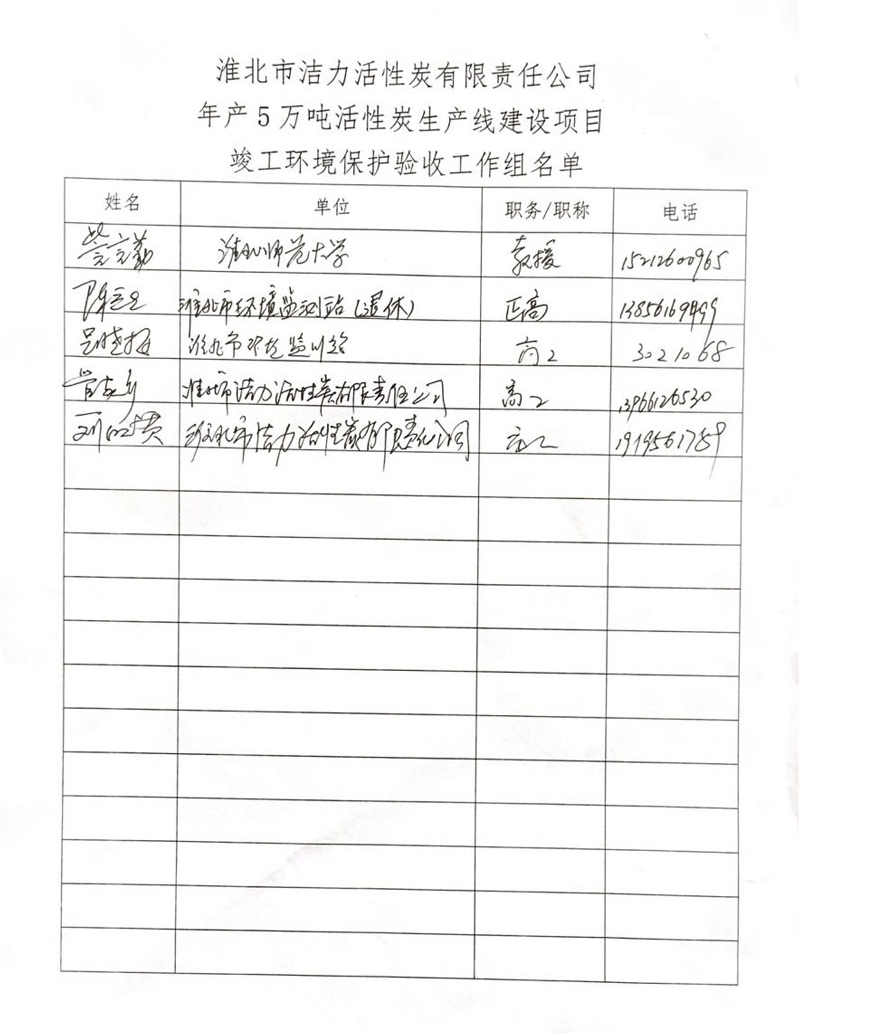 淮北市洁力活性炭有限责任公司
年产5万吨活性炭生产线建设项目
竣工环境保护验收工作组名单
姓名 单位 职务/职称 电话
淮北师范大学 教授 15212600965
淮北市环境监测站(退休) 正高 13856169499
淮北市环境监测站 高工 3021068
淮北市洁力活性炭有限责任公司 高工 13966126530
淮北市洁力活性炭有限责任公司